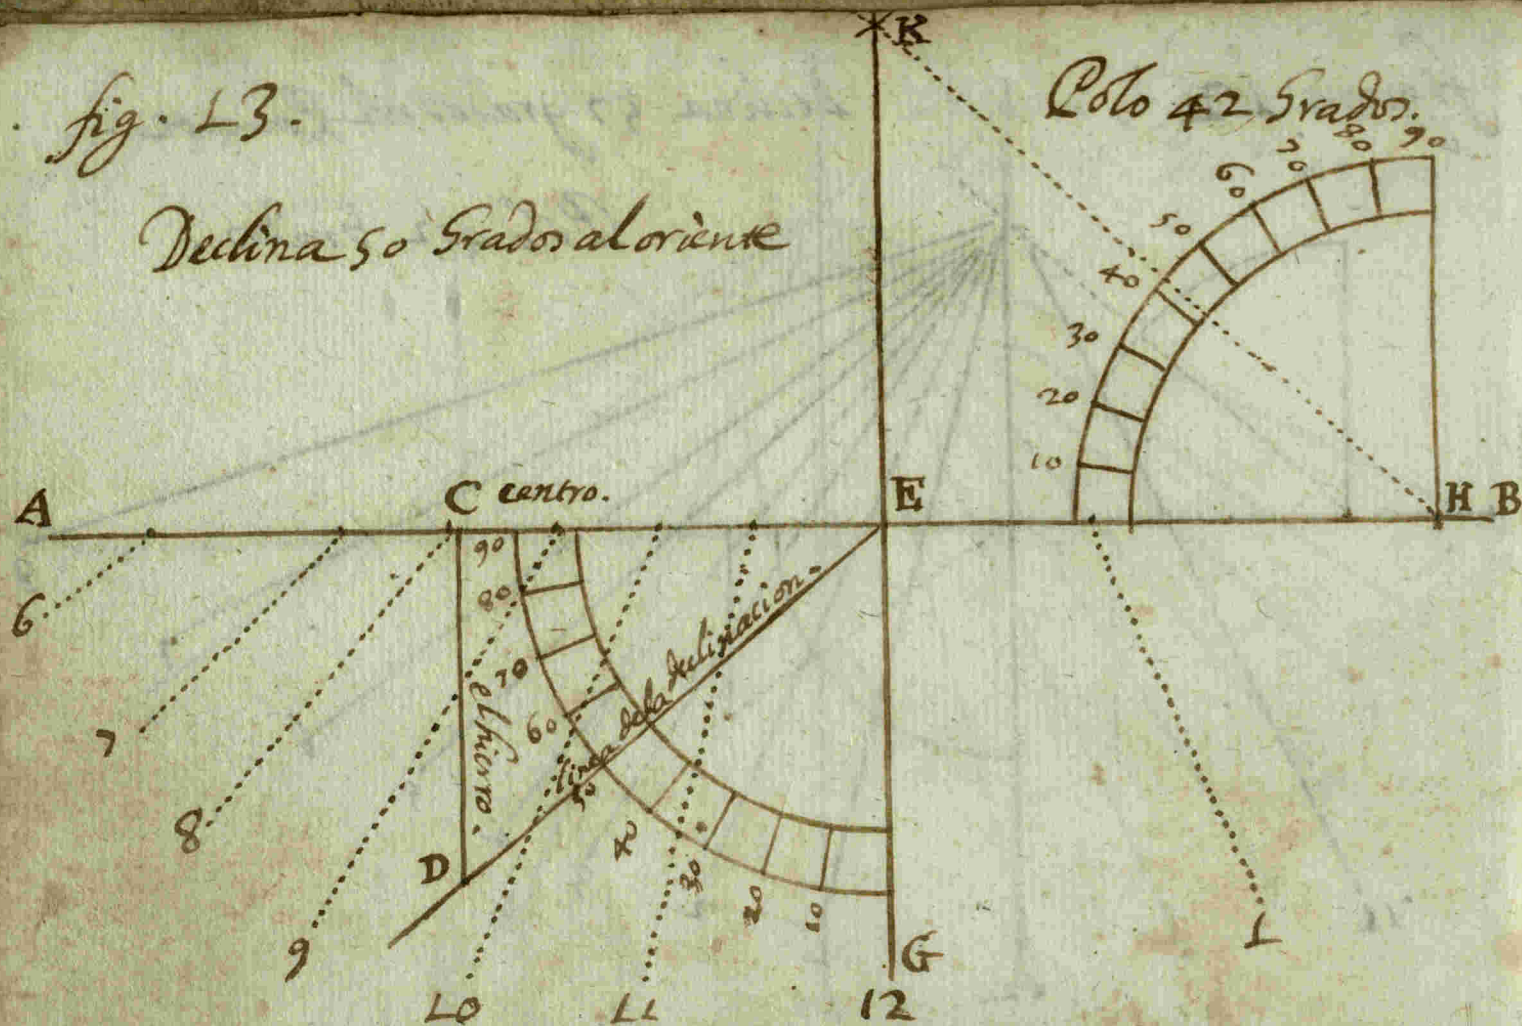 K
fig. 13.
Polo 42 Grados.
Declina 50 Grados al oriente
90
80
70
60
50
40
30
20
10
A
C centro.
E
H B
90
80
70
60
50
40
30
20
10
el hierro.
linea dela declinacion.
D
G
6
7
8
9
10
11
12
1